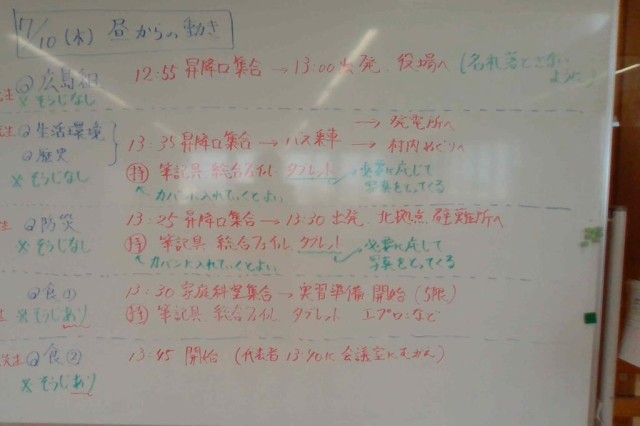 7/10(木) 昼からの動き
@広島組 12:55 昇降口集合 → 13:00 出発 役場へ (名札落とさない
※そうじなし ように
生 @生活環境 → 発電所へ
@歴史 13:35 昇降口集合 → バス乗車 → 村内めぐりへ
※そうじなし 持 筆記具 総合ファイル タブレット 必要に応じて
カバンに入れていくとよい 写真をとってくる
生 @防災 13:25 昇降口集合 → 13:30 出発 北拠点 避難所へ
※そうじなし 持 筆記具 総合ファイル タブレット 必要に応じて
カバンに入れていくとよい 写真をとってくる
@食① 13:30 家庭科室集合 → 実習準備 開始 (5限)
※そうじあり 持 筆記具 総合ファイル タブレット エプロンなど
先生 @食② 13:45 開始 (代表者 13:40に 会議室にむかう)
※そうじあり